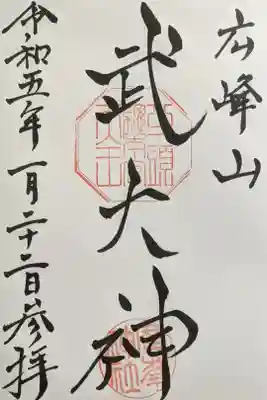 広峰山
武大神
令和五年一月二十二日参拝